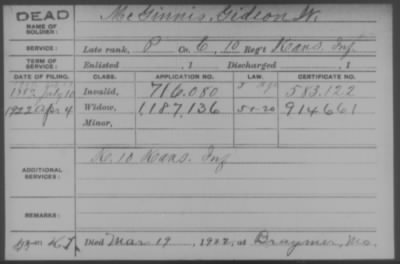 DEAD
NAME OF SOLDIER: McGinnis, Gideon W.
SERVICE: Late rank, P Co. E, 10 Reg't Kans. Inf
TERM OF SERVICE: Enlisted , 1 Discharged , 1
DATE OF FILING. CLASS. APPLICATION NO. LAW. CERTIFICATE NO.
July 10 Invalid, 716.080 583.122
1922 Apr 4 Widow, 1187,136 5-1-20 914661
Minor,
ADDITIONAL SERVICES: K. 10 Kans. Inf
REMARKS:
Died Mar 19, 1922, at Braymer, Mo.